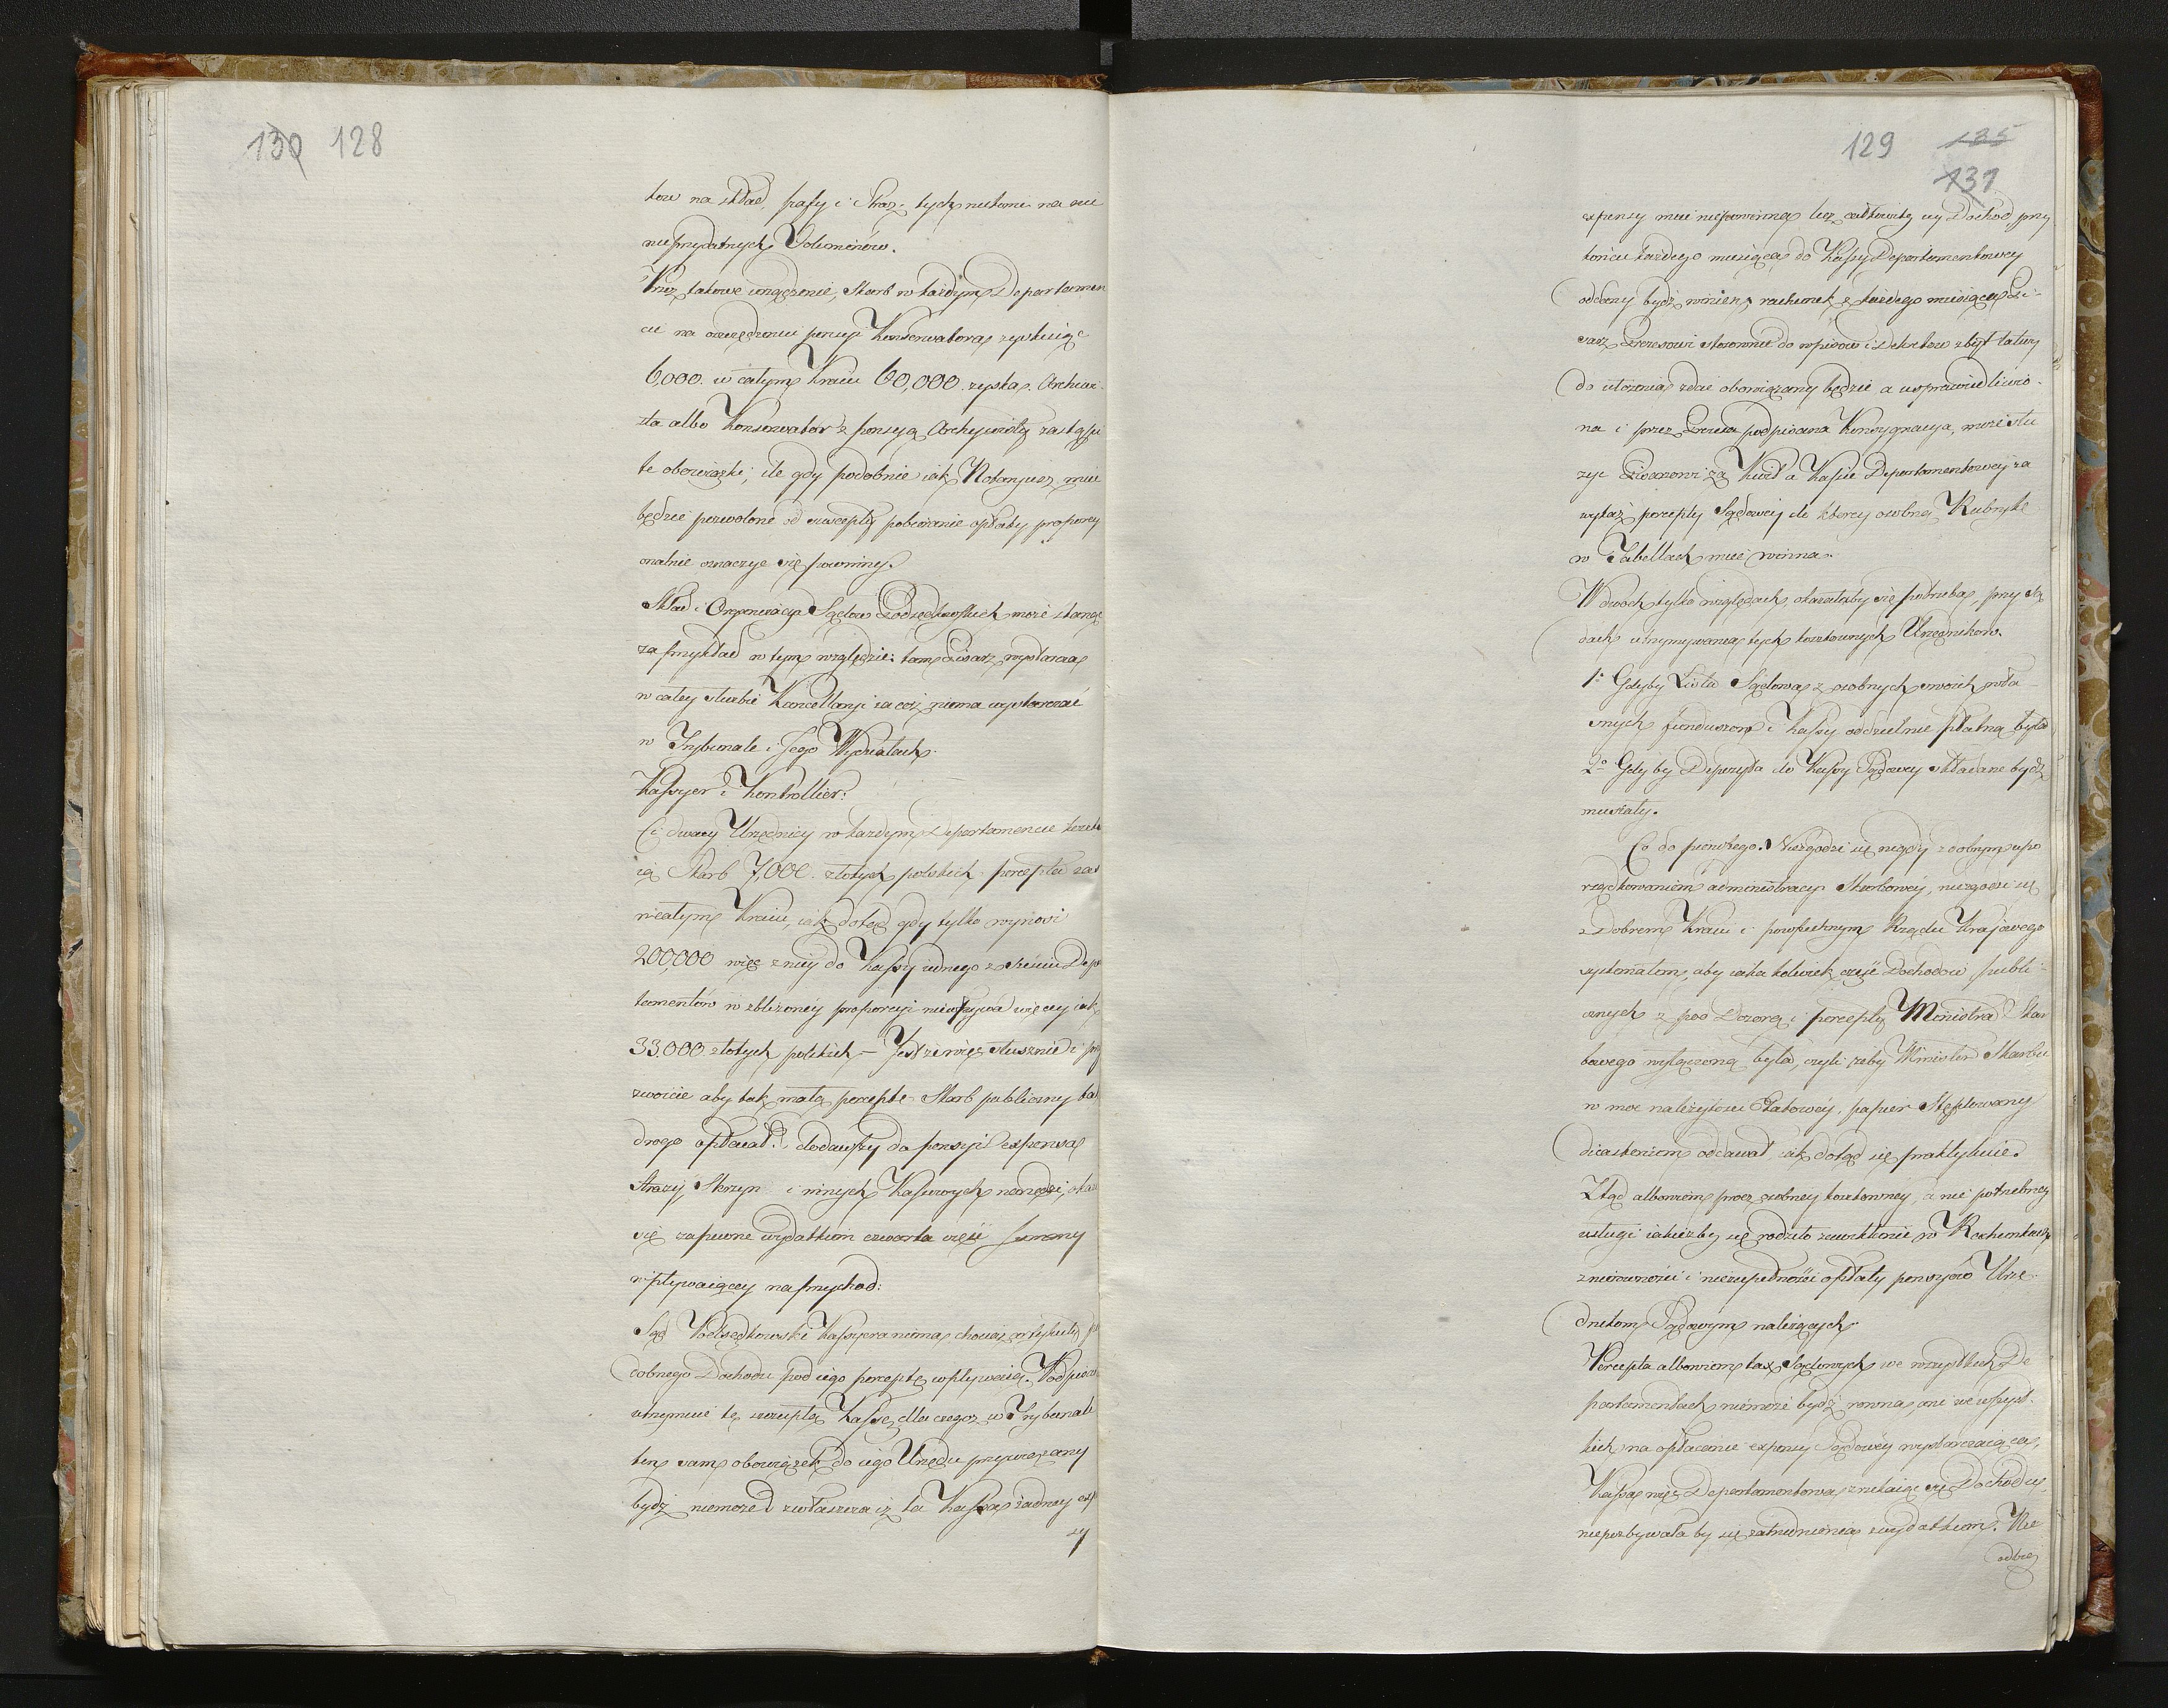 130 128
tow na skład, szafy i straż tych niekomu na nic
nieprzydatnych Voluminów.
Przez takowe urządzenie, Skarb w każdym Departamen
cie na oszczędzeniu pensyi Konserwatora zyskuiąc
6,000. w całym Kraiu 60,000. zyska. Archiwi
sta albo Konserwator z pensyą Archiwisty zastąpi
te obowiązki; ile gdy podobnie iak Notaryusz mieć
będzie pozwolone od excepty pobieranie opłaty proporcy
onalnie oznaczyć się powinny.
Skład i Organizacya Sądow Podsędkowskich może stanąć
za przykład w tym względzie: tam Pisarz wystarcza
w całey służbie Kancellaryi za coż niema wystarczać
w Trybunale i Jego Wydziałach.
Kassyer i Kontroller:
Ci dway Urzędnicy w każdym Departamencie koszt
ią Skarb 7,000. złotych polskich percepta zaś
w całym Kraiu, iak dotąd gdy tylko wynosi
200,000 więc z niey do Kassy iednego z sześciu Depar
tamentów w zbliżoney proporcyi niewpływa więcey iak
33.000 złotych polskich – Jestże więc słusznie i prz
zwoicie aby tak małą perceptę Skarb publiczny tak
drogo opłacał? dodawszy do pensyi expensa
Straży, Skrzyn i innych Kassowych narzędzi, okaże
się zapewne wydatkiem czwarta część Summy
wpływaiącey na przychod:
Sąd Podsędkowski Kassyera niema, chociaż artykuły po
dobnego Dochodu pod iego perceptę wpływaią. Podpisek
utrzymuie tę szczupłą Kassę, dla czegoż w Trybunale
ten sam obowiązek do iego Urzędu przywiązany
bydź niemoże? zwłaszcza iż ta Kassa żadney ex
sy
129 135
131
expensy mieć niepowinna lecz całkowity iey Dochod przy
końcu każdego miesiąca do Kassy Departamentowey
oddany bydź winien, rachunek z każdego miesiąca Pi-
sarz Prezesowi stosownie do wpisow i Dekretow zbyt łatwy
do ułożenia zdać obowiązany będzie a usprawiedliwio-
na i przez Prezesa podpisana Konsygnacya, może słu
żyć Pisarzowi za Kwit a Kassie Departamentowey za
wykaz percepty Sądowey do ktorey osobną Rubrykę
w Tabellach mieć winna.
W dwoch tylko względach, okazałaby się potrzeba, przy Są
dach utrzymywania tych kosztownych Urzędnikow.
1o Gdyby Lista Sądowa z osobnych swoich wła
snych funduszow i Kassy oddzielnie płatną była
2o Gdyby Depozyta do Kassy Sądowey składane bydź
musiały.
Co do pierwszego. Niezgodzi się nigdy z dobrym upo
rządkowaniem administracyi Skarbowey, niezgodzi się
z Dobrem Kraiu i powszechnym Rządu Krajowego
systematem, aby iaka kolwiek część Dochodow publi-
cznych z pod Dozoru i percepty Ministra Skar
bowego wyłączoną była, czyli żeby Minister Skarbu
w moc należytości Etatowey, papier Stęplowany
dicasteriom oddawał iak dotąd się praktykuie.
Ztąd albowiem procz osobney kosztowney, a nie potrzebney
usługi iakieżby się rodziło zawikłanie w Rachunkach
z nierowności i niezupełności opłaty pensyów Urzę-
dnikom Sądowym należących.
Percepta albowiem tax Sądowych we wszystkich De
partamentach niemoże bydź rowną, ani we wszyst-
kich na opłacenie expensy Sądowey wystarczaiącą,
Kassa więc Departamentowa zrzekaiąc się Dochodu,
niepozbywałaby się zatrudnienia z wydatkiem. Nie
odbie